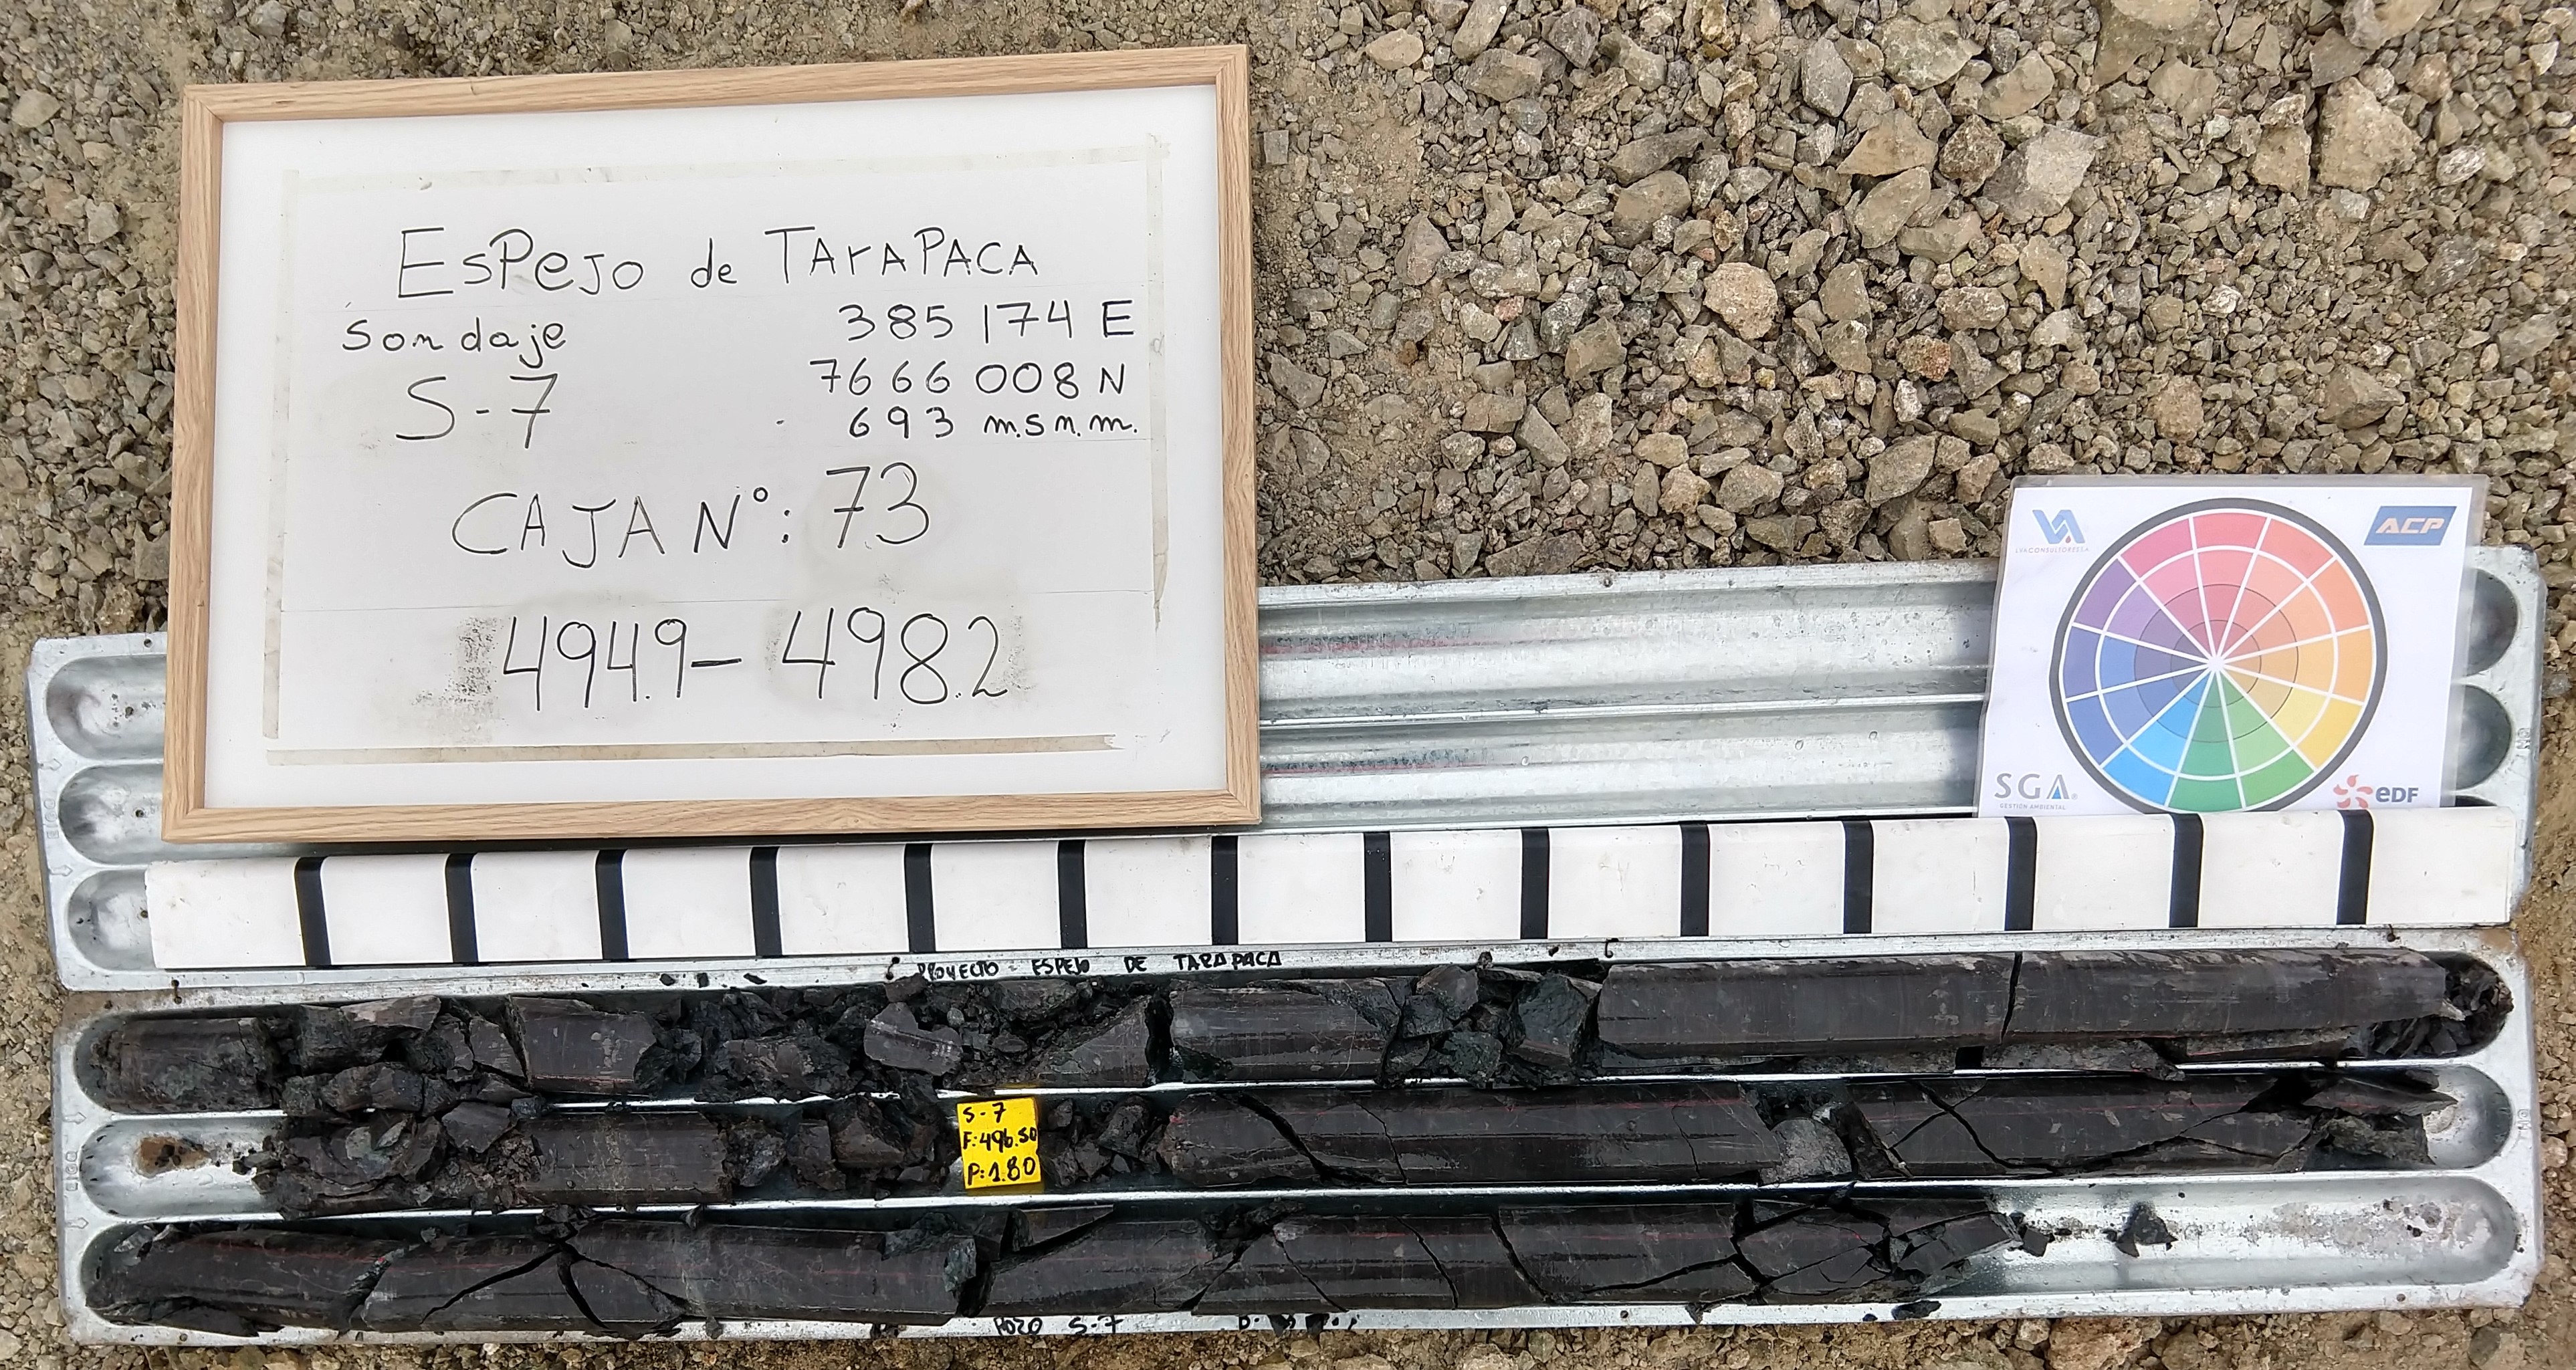 ESPEJO de TArAPACA
Sondaje
385 174 E
S-7
7666 008 N
693 m.s.n.m.
CAJA N°: 73
494.9 - 498.2
ACP
SGA
GESTIÓN AMBIENTAL
eDF
PROYECTO - ESPEJO DE TARAPACA
S-7
F:496.50
P:1.80
POZO S-7